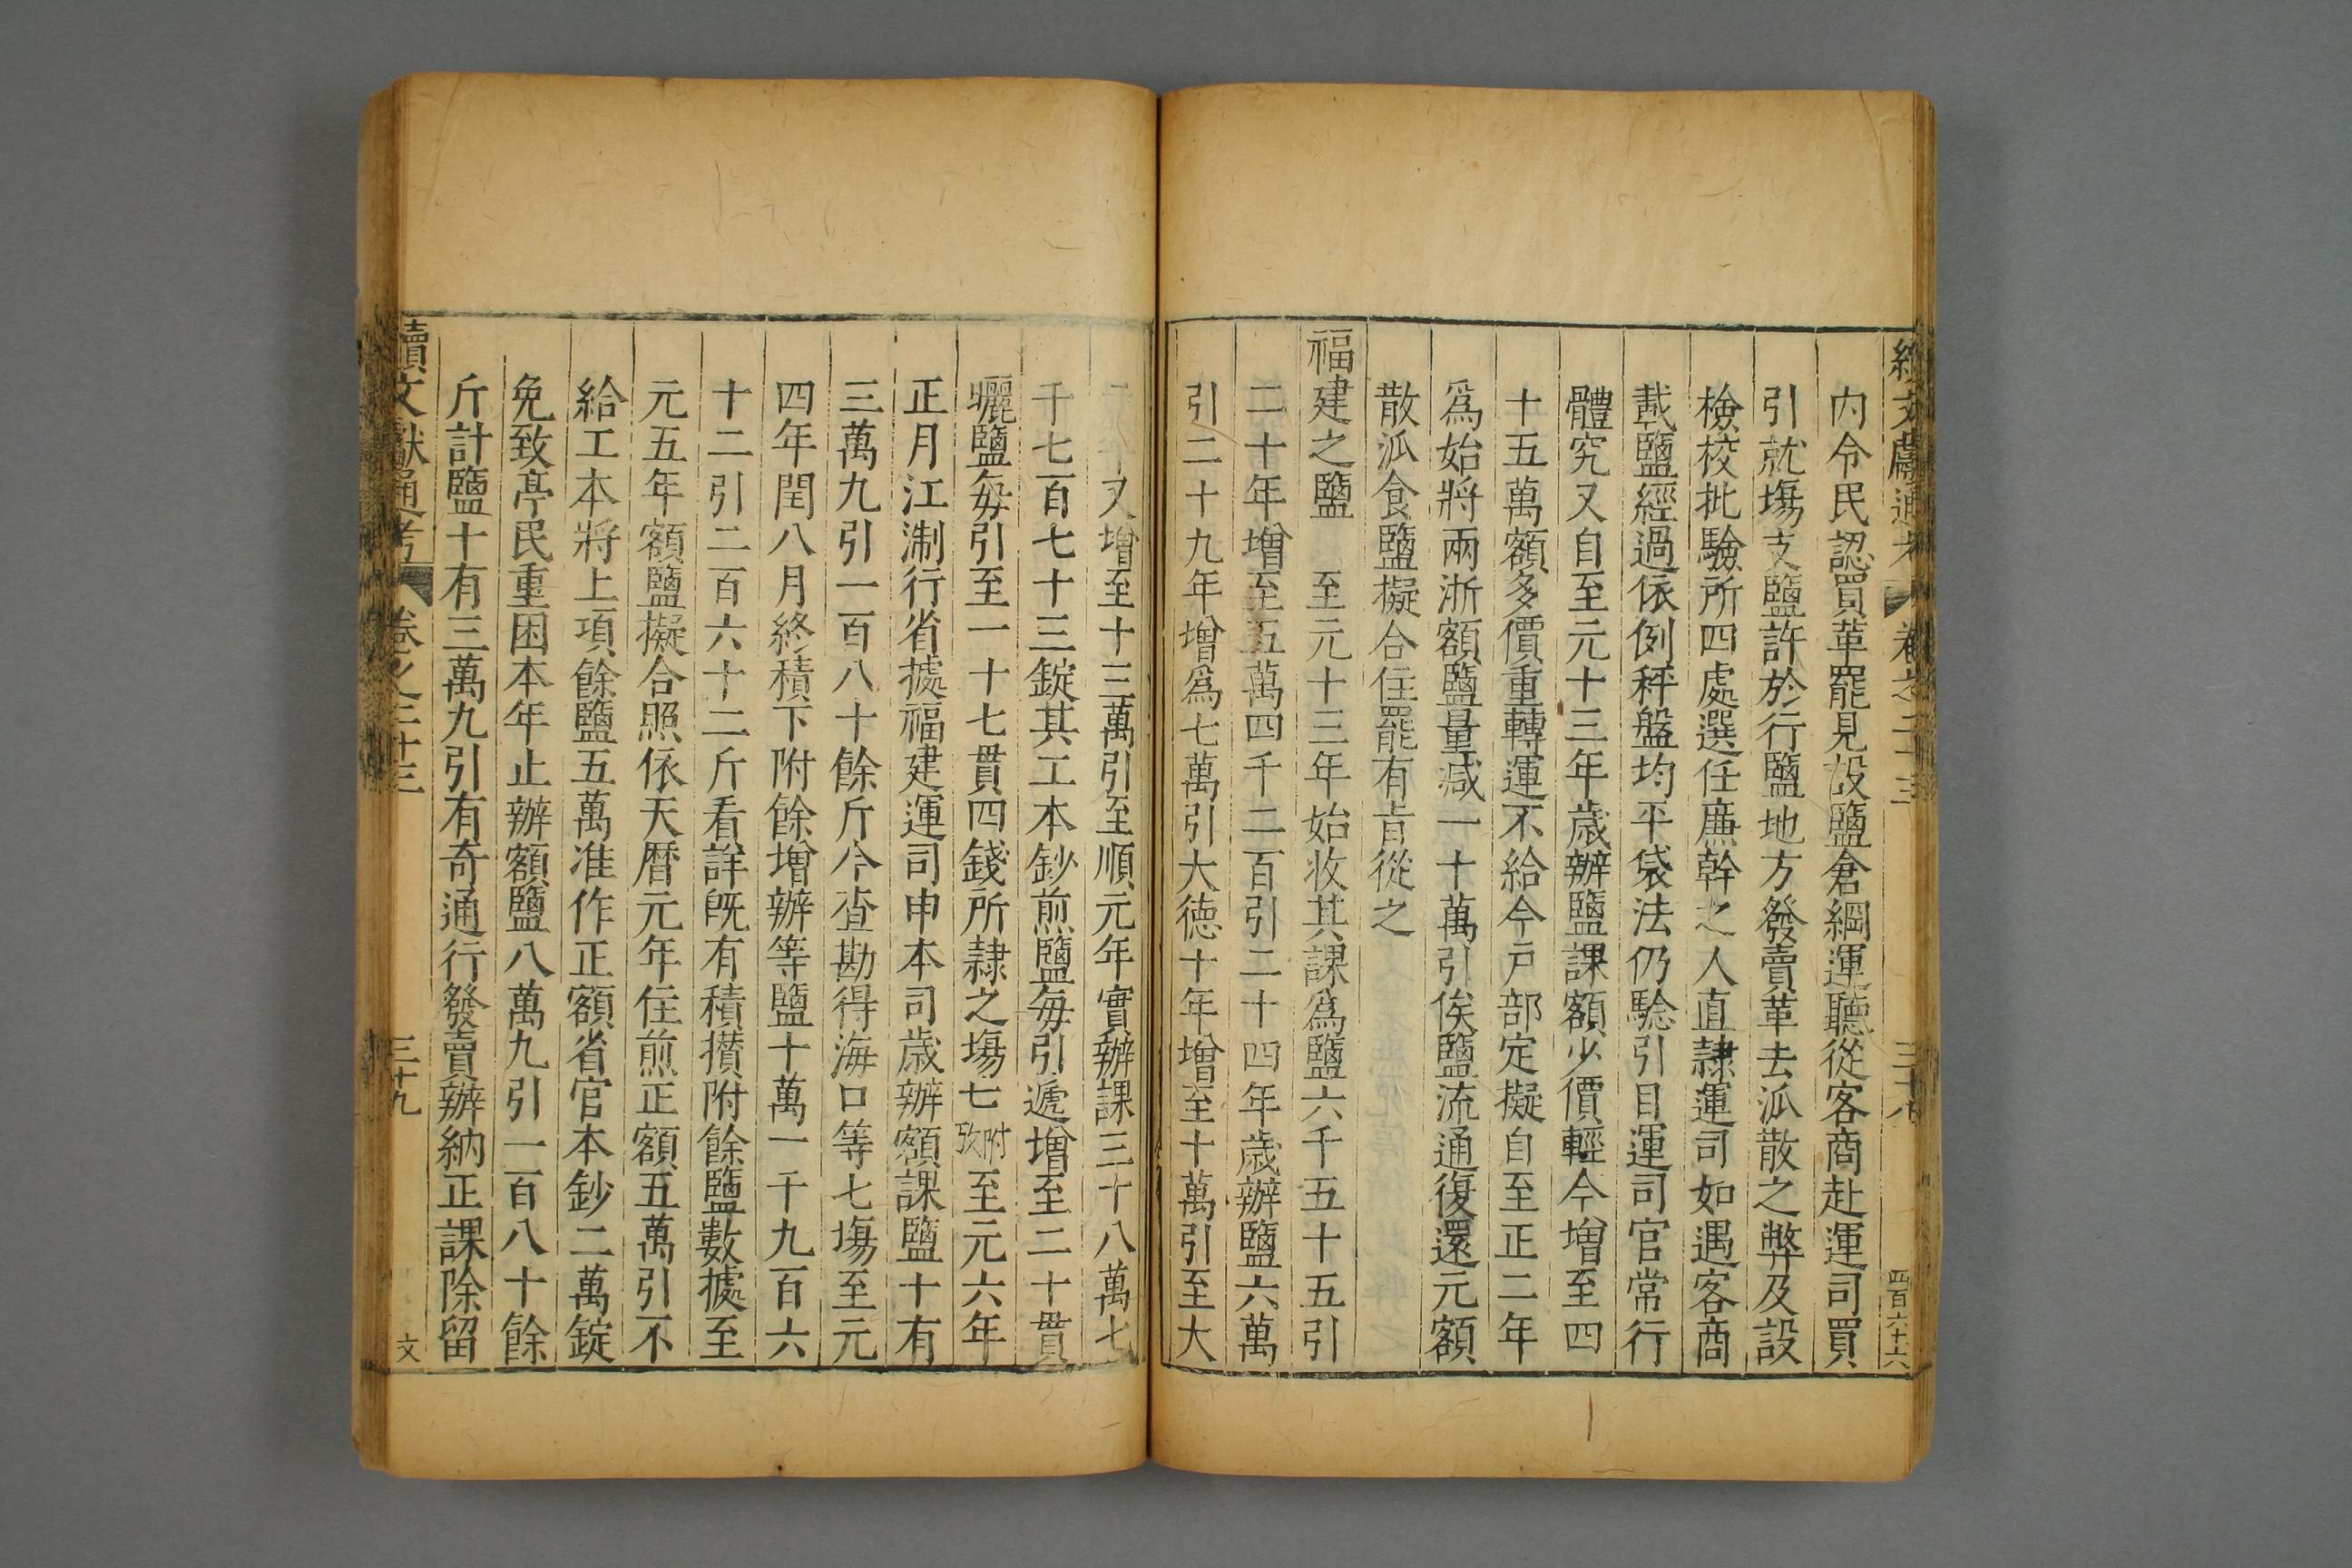 續文獻通考 卷之二十三 三十八 四百六十六
内令民認買革罷見設鹽倉綱運聽從客商赴運司買
引就塲支鹽許於行鹽地方發賣革去派散之弊及設
檢校批驗所四處選任廉幹之人直隷運司如遇客商
載鹽經過依例秤盤均平袋法仍驗引目運司官常行
體究又自至元十三年歲辦鹽課額少價輕今增至四
十五萬額多價重轉運不給今户部定擬自至正二年
爲始將兩浙額鹽量减一十萬引俟鹽流通復還元額
散派食鹽擬合住罷有旨從之
福建之鹽 至元十三年始收其課爲鹽六千五十五引
二十年增至五萬四千二百引二十四年歲辦鹽六萬
引二十九年增爲七萬引大德十年增至十萬引至大
年又增至十三萬引至順元年實辦課三十八萬七
千七百七十三錠其工本鈔煎鹽每引遞增至二十貫
曬鹽每引至一十七貫四錢所隷之塲七附攷至元六年
正月江淛行省據福建運司申本司歲辦額課鹽十有
三萬九引一百八十餘斤今查勘得海口等七塲至元
四年閏八月終積下附餘增辦等鹽十萬一千九百六
十二引二百六十二斤看詳旣有積攅附餘鹽數據至
元五年額鹽擬合照依天曆元年住煎正額五萬引不
給工本將上項餘鹽五萬准作正額省官本鈔二萬錠
免致亭民重困本年止辦額鹽八萬九引一百八十餘
斤計鹽十有三萬九引有奇通行發賣辦納正課除留
續文獻通考 卷之二十三 三十九 文